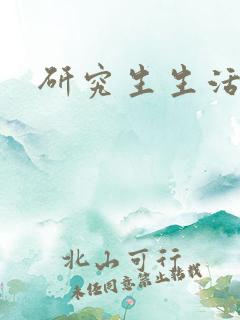 研究生生活
北山可行
未经同意禁止转载